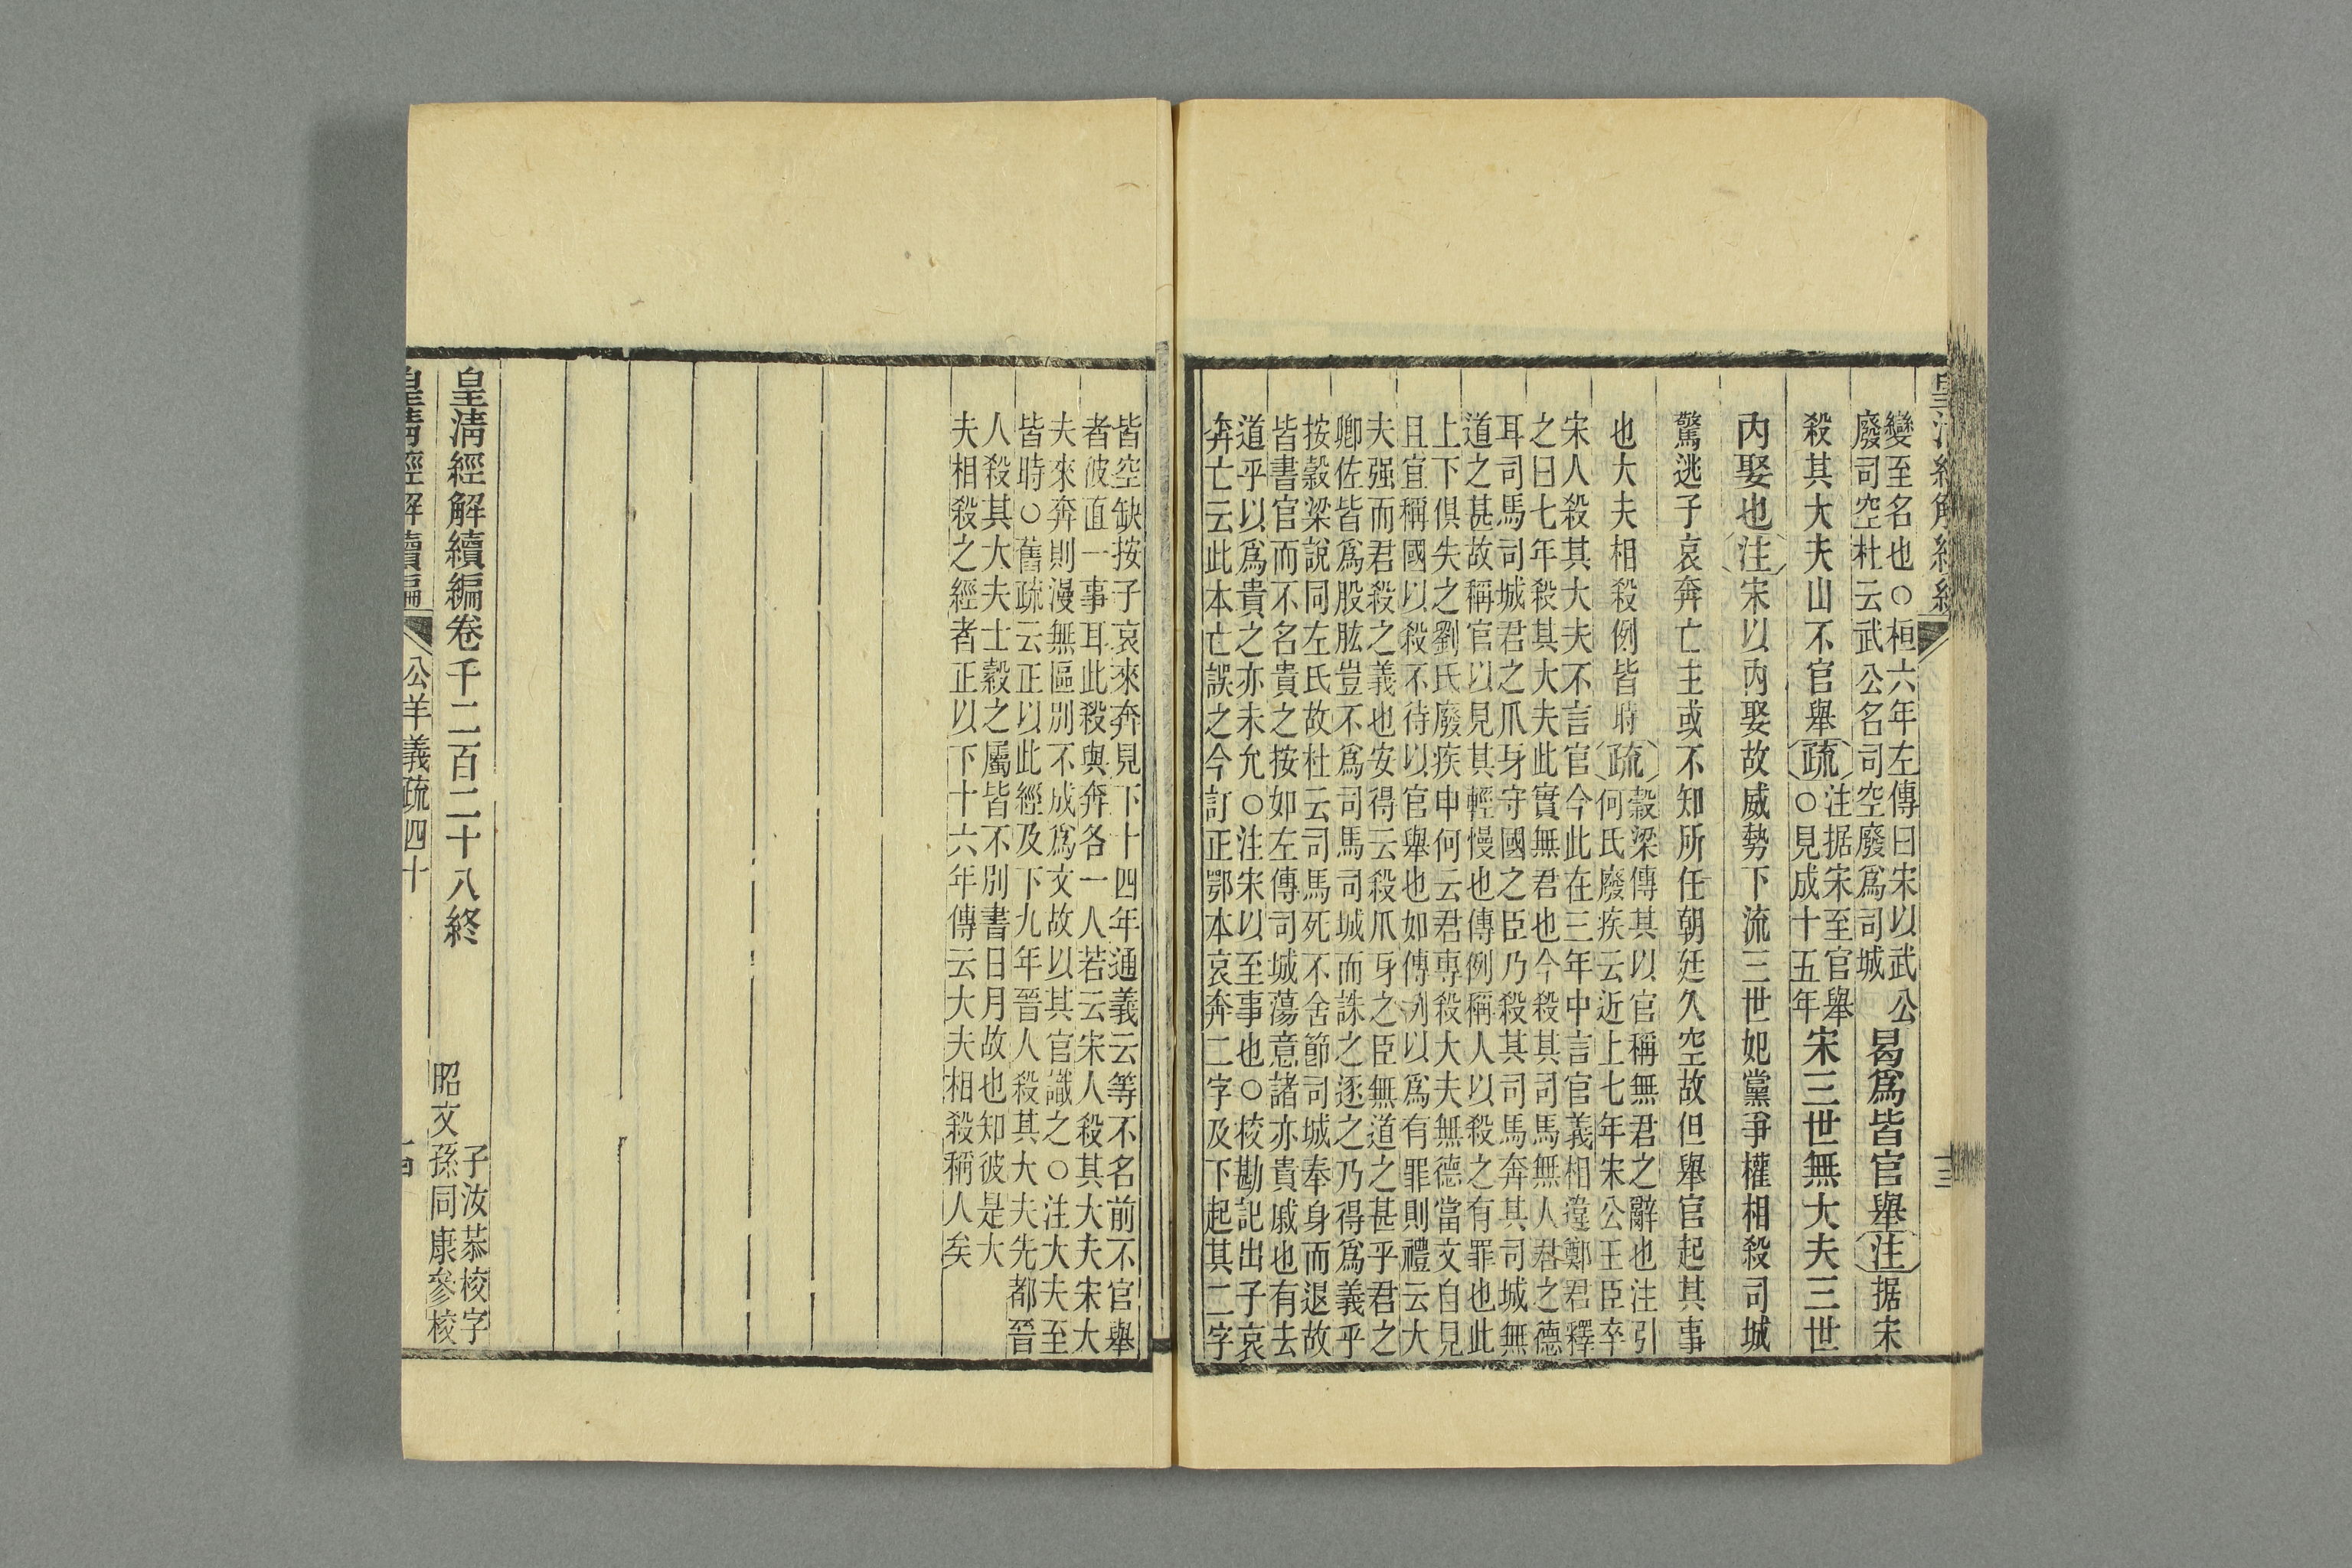 變至名也○桓六年左傳曰宋以武公
廢司空杜云武公名司空廢爲司城
曷爲皆官舉〔注〕据宋
殺其大夫山不官舉〔疏〕
注据宋至官舉
○見成十五年
宋三世無大夫三世
內娶也〔注〕宋以內娶故威勢下流三世妃黨爭權相殺司城
驚逃子哀奔亡主或不知所任朝廷久空故但舉官起其事
也大夫相殺例皆時〔疏〕
穀梁傳其以官稱無君之辭也注引
何氏廢疾云近上七年宋公王臣卒
宋人殺其大夫不言官今此在三年中言官義相違鄭君釋
之曰七年殺其大夫此實無君也今殺其司馬無人君之德
耳司馬司城君之爪牙守國之臣乃殺其司馬奔其司城無
道之甚故稱官以見其輕慢也傳例稱人以殺之有罪也此
上下俱失之劉氏廢疾申何云君專殺大夫無德當文自見
且宜稱國以殺不待以官舉也如傳例以爲有罪則禮云大
夫强而君殺之義也安得云殺爪牙之臣無道之甚乎君之
卿佐皆爲股肱豈不爲司馬司城而誅之逐之乃得爲義乎
按穀梁說同左氏故杜云司馬死不舍節司城奉身而退故
皆書官而不名貴之按如左傳司城蕩意諸亦貴戚也有去
道乎以爲貴之亦未允○注宋以至事也○校勘記出子哀
奔亡云此本亡誤之今訂正鄂本哀奔二字及下起其二字
皆空缺按子哀來奔見下十四年通義云等不名前不官舉
者彼直一事耳此殺與奔各一人若云宋人殺其大夫宋大
夫來奔則漫無區別不成爲文故以其官識之○注大夫至
皆時○舊疏云正以此經及下九年晉人殺其大夫先都晉
人殺其大夫士縠之屬皆不別書日月故也知彼是大
夫相殺之經者正以下十六年傳云大夫相殺稱人矣
皇清經解續編卷千二百二十八終
子汝恭校字
昭文孫同康參校
皇清經解續編
公羊義疏四十